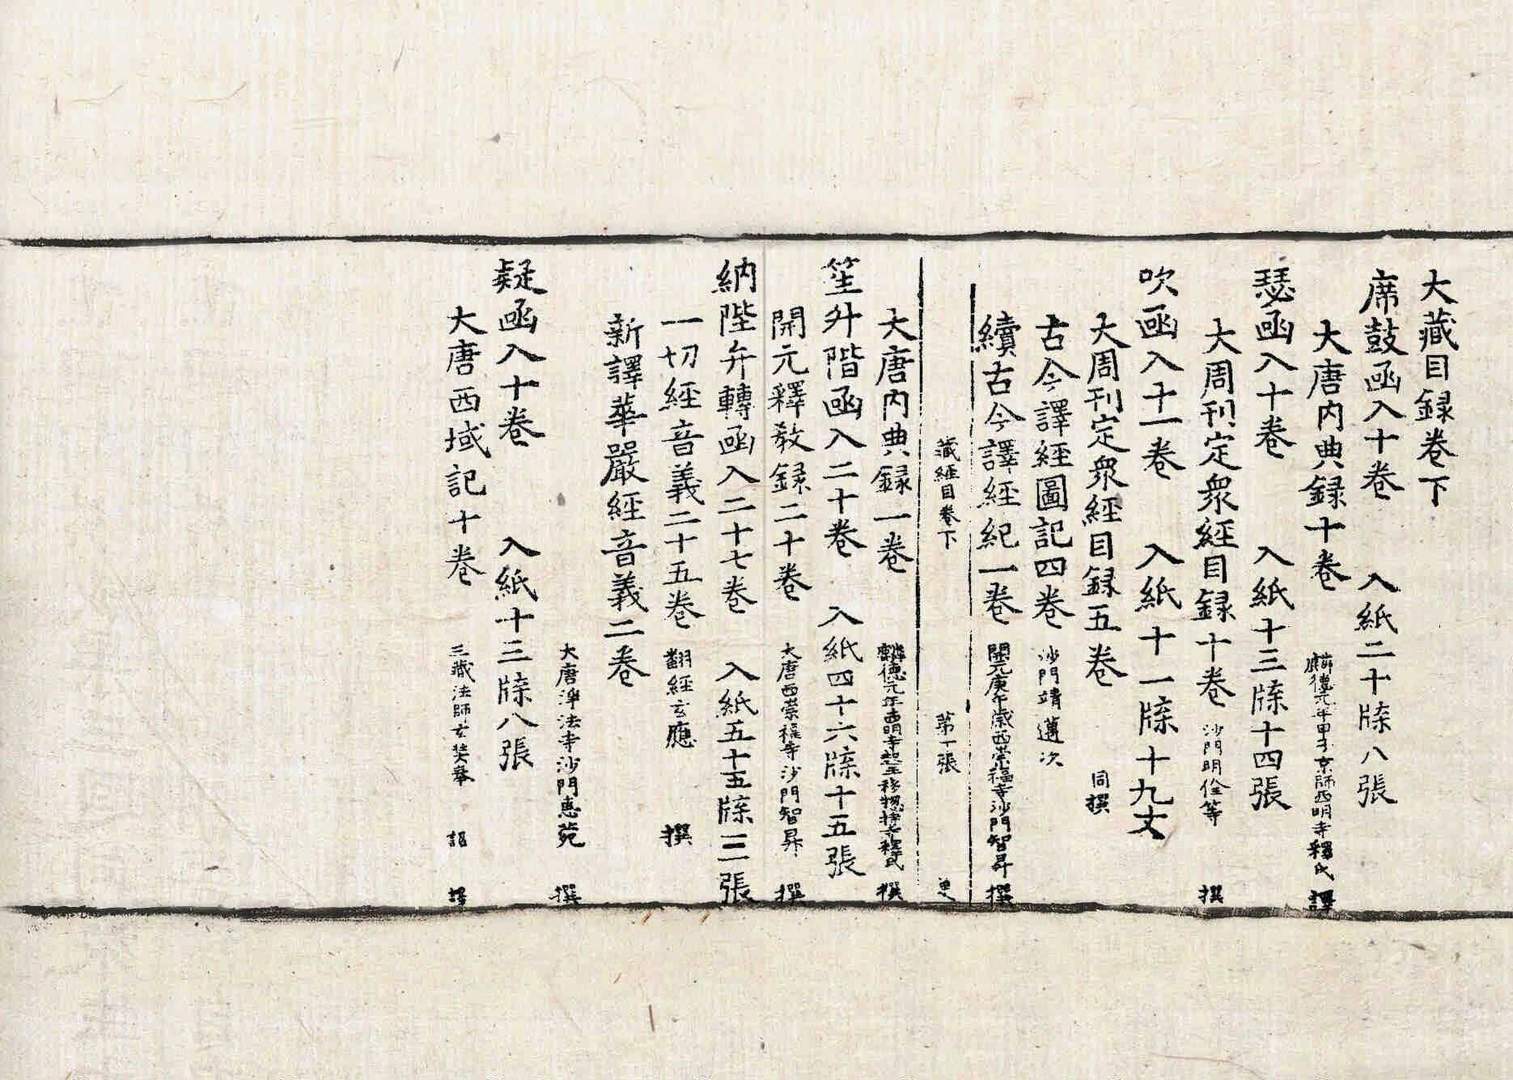 大藏目録卷下
席鼓函入十卷 入紙二十牒八張
大唐内典録十卷 麟德元年甲子京師西明寺釋氏 譔
瑟函入十卷 入紙十三牒十四張
大周刊定衆經目録十卷 沙門明佺等 撰
吹函入十一卷 入紙十一牒十九丈
大周刊定衆經目録五卷 同撰
古今譯經圖記四卷 沙門靖邁次
續古今譯經紀一卷 開元庚午歲西崇福寺沙門智昇 撰
藏經目卷下 第一張 更
大唐内典録一卷 麟德元年西明寺 撰
笙升階函入二十卷 入紙四十六牒十五張
開元釋教録二十卷 大唐西崇福寺沙門智昇 撰
納陛弁轉函入二十七卷 入紙五十五牒三張
一切經音義二十五卷 翻經玄應 撰
新譯華嚴經音義二卷 大唐淨法寺沙門惠菀 撰
疑函入十卷 入紙十三牒八張
大唐西域記十卷 三藏法師玄奘奉 詔 譯